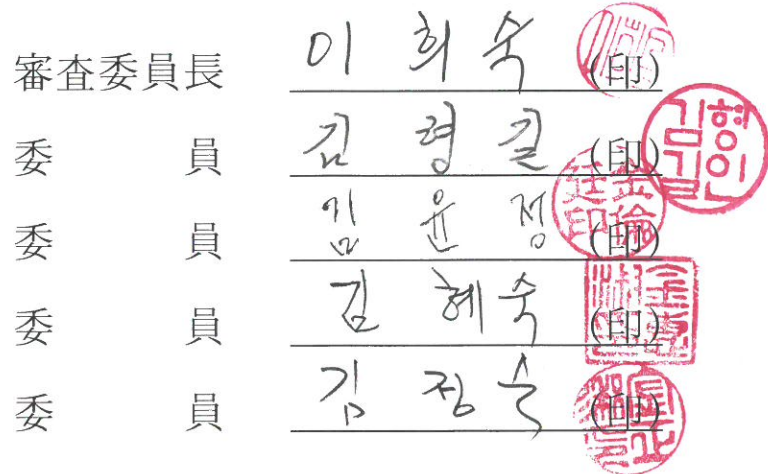 審査委員長 이 희 숙 (印)
委 員 김 형 길 (印)
委 員 김 윤 정 (印)
委 員 김 혜 숙 (印)
委 員 김 정 숙 (印)
김형길인
金倫廷印